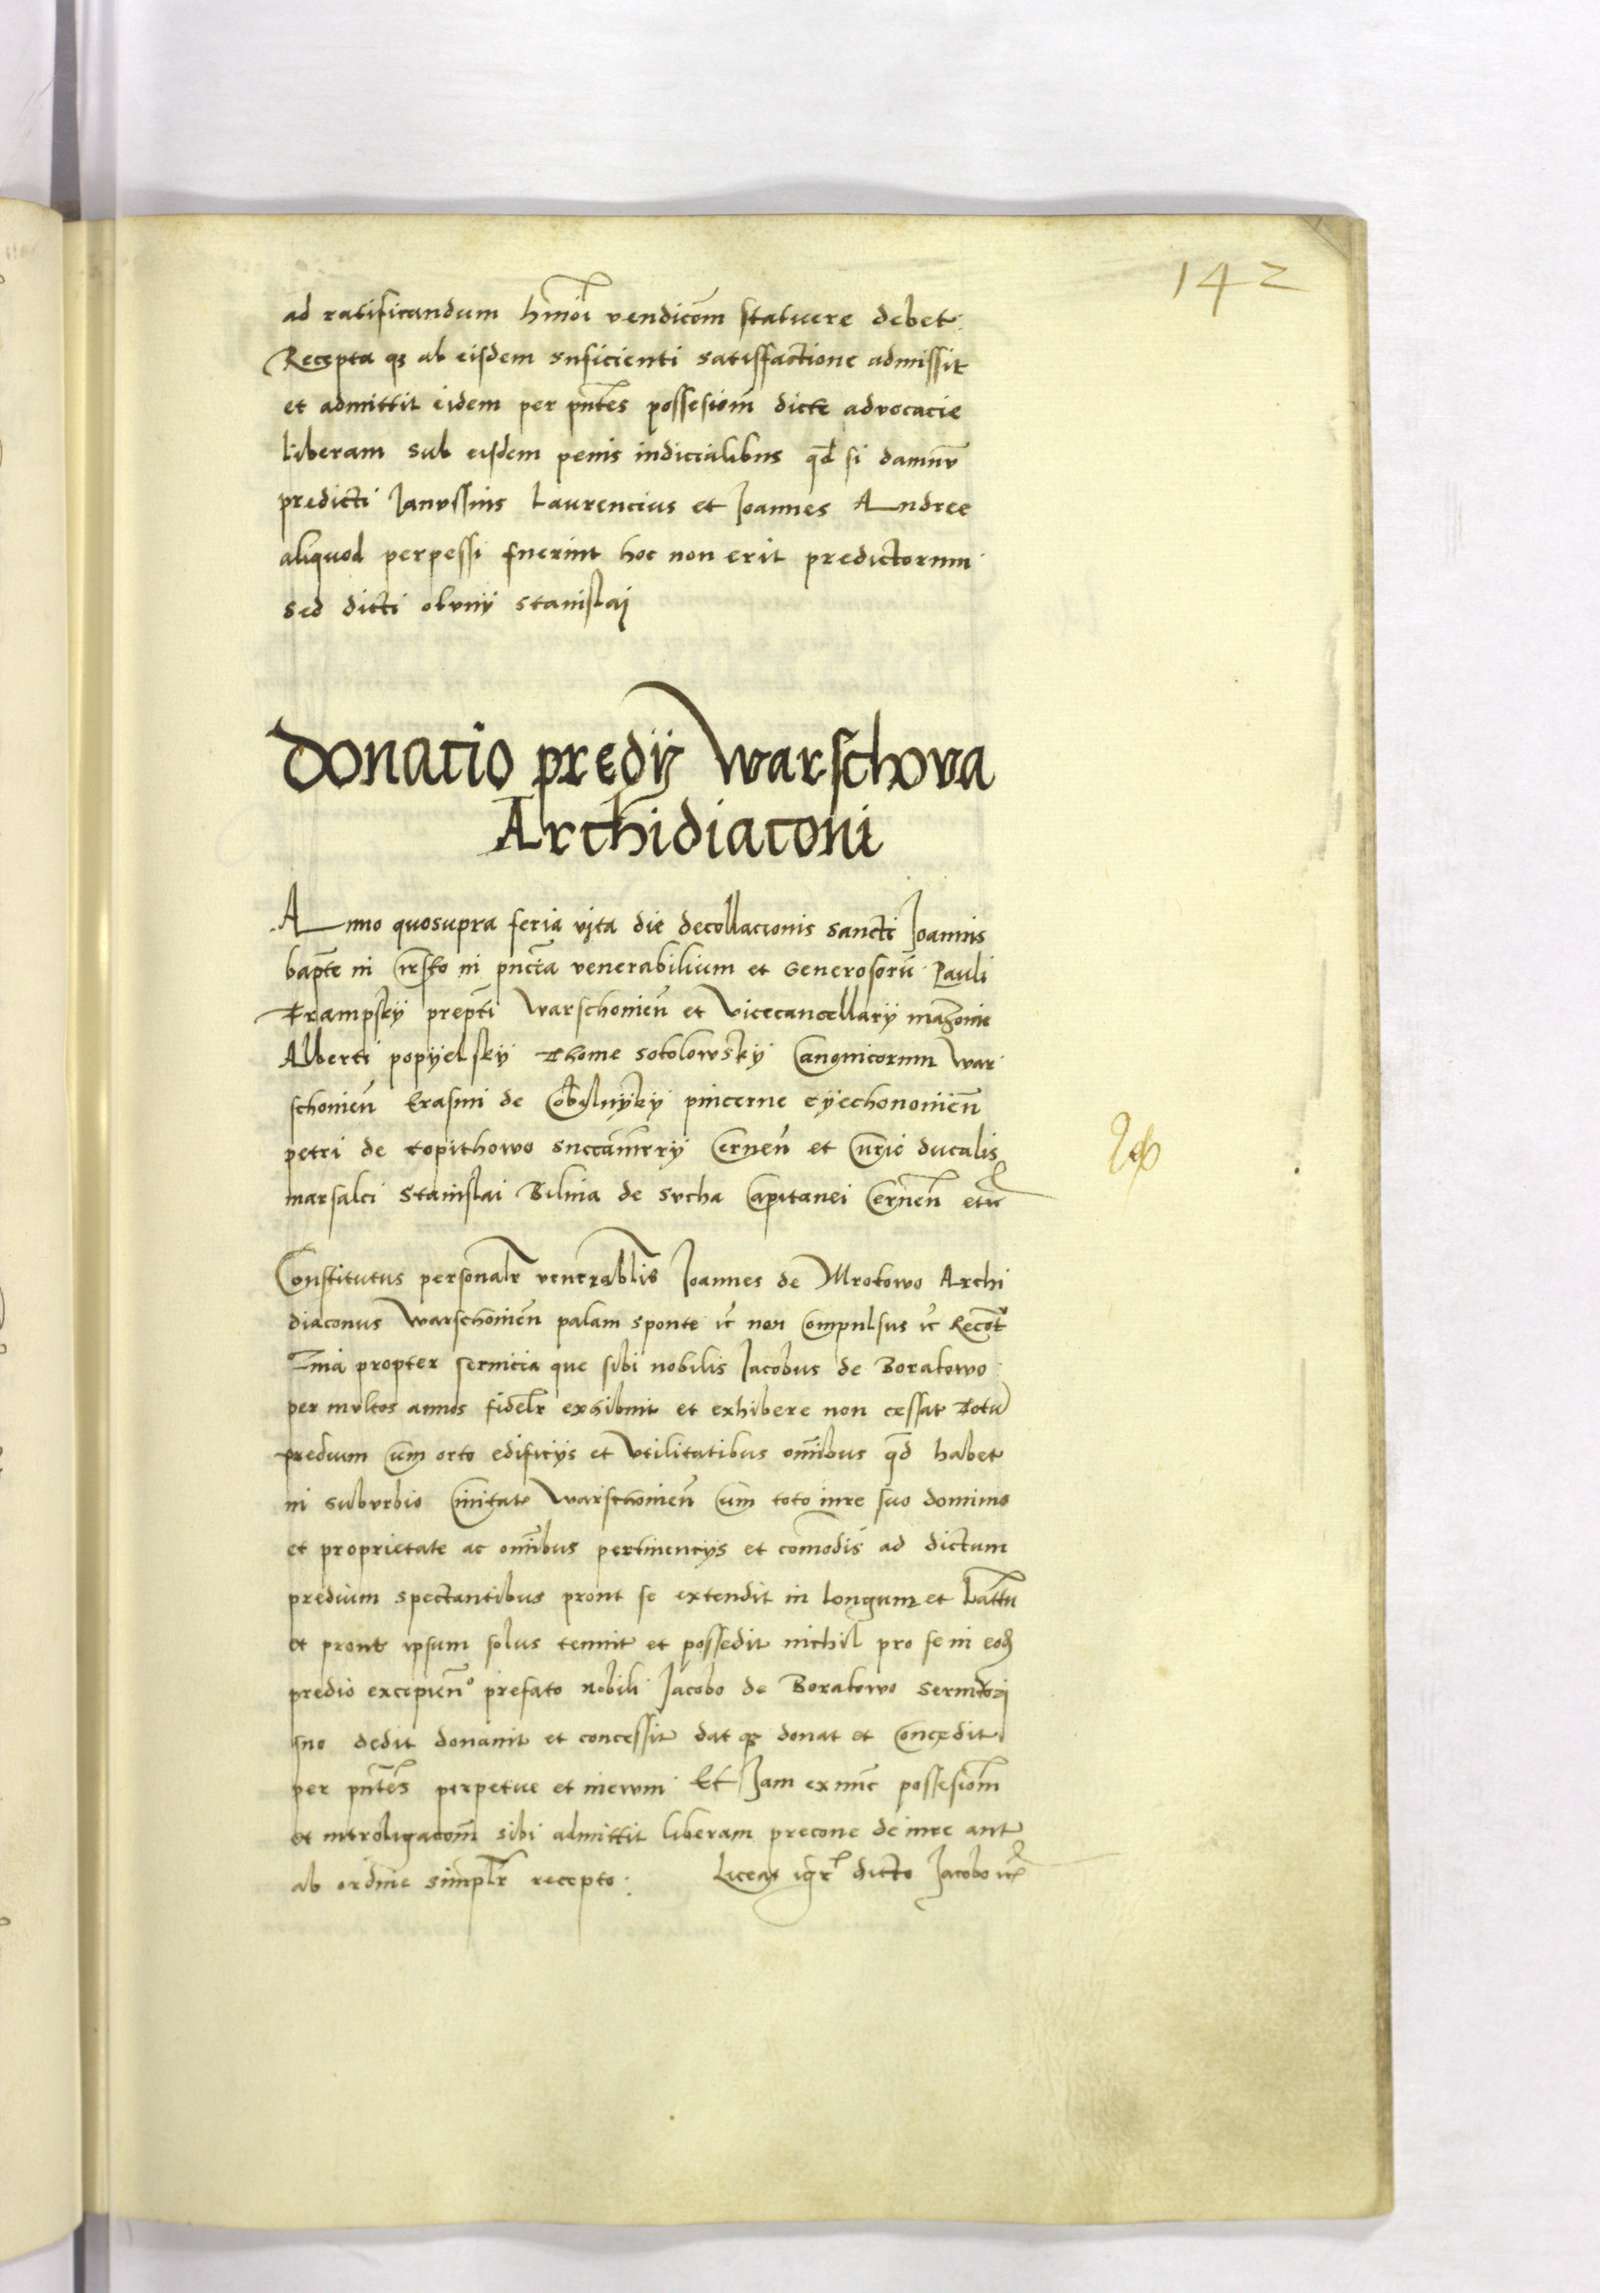 142
ad ratificandum hmõi vendicõm statuere debet
Recepta q3 ab eisdem suficienti satisffactione admissit
et admittit eidem per pñtes possesiom̃ dicte advocacie
liberam sub eisdem penis iudicialibus qd̃ si damnũ
predicti Janussius Laurencius et Joannes Andree
aliquod perpessi fuerint hoc non erit predictorum
sed dicti olvnij Stanislaj
Donacio predij Warschova
Archidiaconi
Anno quosupra feria vjta die decollacionis sancti Joannis
bapte in Cirsko in pñcia venerabilium et Generosorũ Pauli
Trampskij prepti Warschonieñ et Vicecancellarij mazovie
Alberti popijelskij Thome sokolowskij Canonicorum War
schonieñ Erasmi de pincerne cijechononieñ
petri de copithowo succamrrij Cerneñ et Curie ducalis
marsalci Stanislai Bilina de sucha Capitanei Cerneñ etc̃
Constitutus personalr̃ venerablis Joannes de Mrokowo Archi
diaconus Warschonieñ palam sponte ic̃ non Compulsus ic̃ Recõt
propter seruicia que sibi nobilis Jacobus de Borakowo
per multos annos fidelr̃ exhibuit et exhibere non cessat Totũ
predium Cum orto edificijs et Vtilitatibus om̃ibus qd̃ habet
in suburbio Ciuitat Warschonieñ Cum toto iure suo dominio
et proprietate ac om̃ibus pertinencijs et comodis ad dictum
predium spectantibus prout se extendit in longum et Lattũ
et prout ipsum solus tenuit et possedit nichil pro se in eod
predio excipieñ prefato nobili Jacobo de Borakowo seruitori
suo dedit donauit et concessit dat q3 donat et Concedit
per pñtes perpetue et inewm Et Jam ex nũc possesiom̃
et introligacom̃ sibi admittit liberam precone de iure aut
ab ordine simplr̃ recepto. Liceat igr̃ dicto Jacobo ic̃